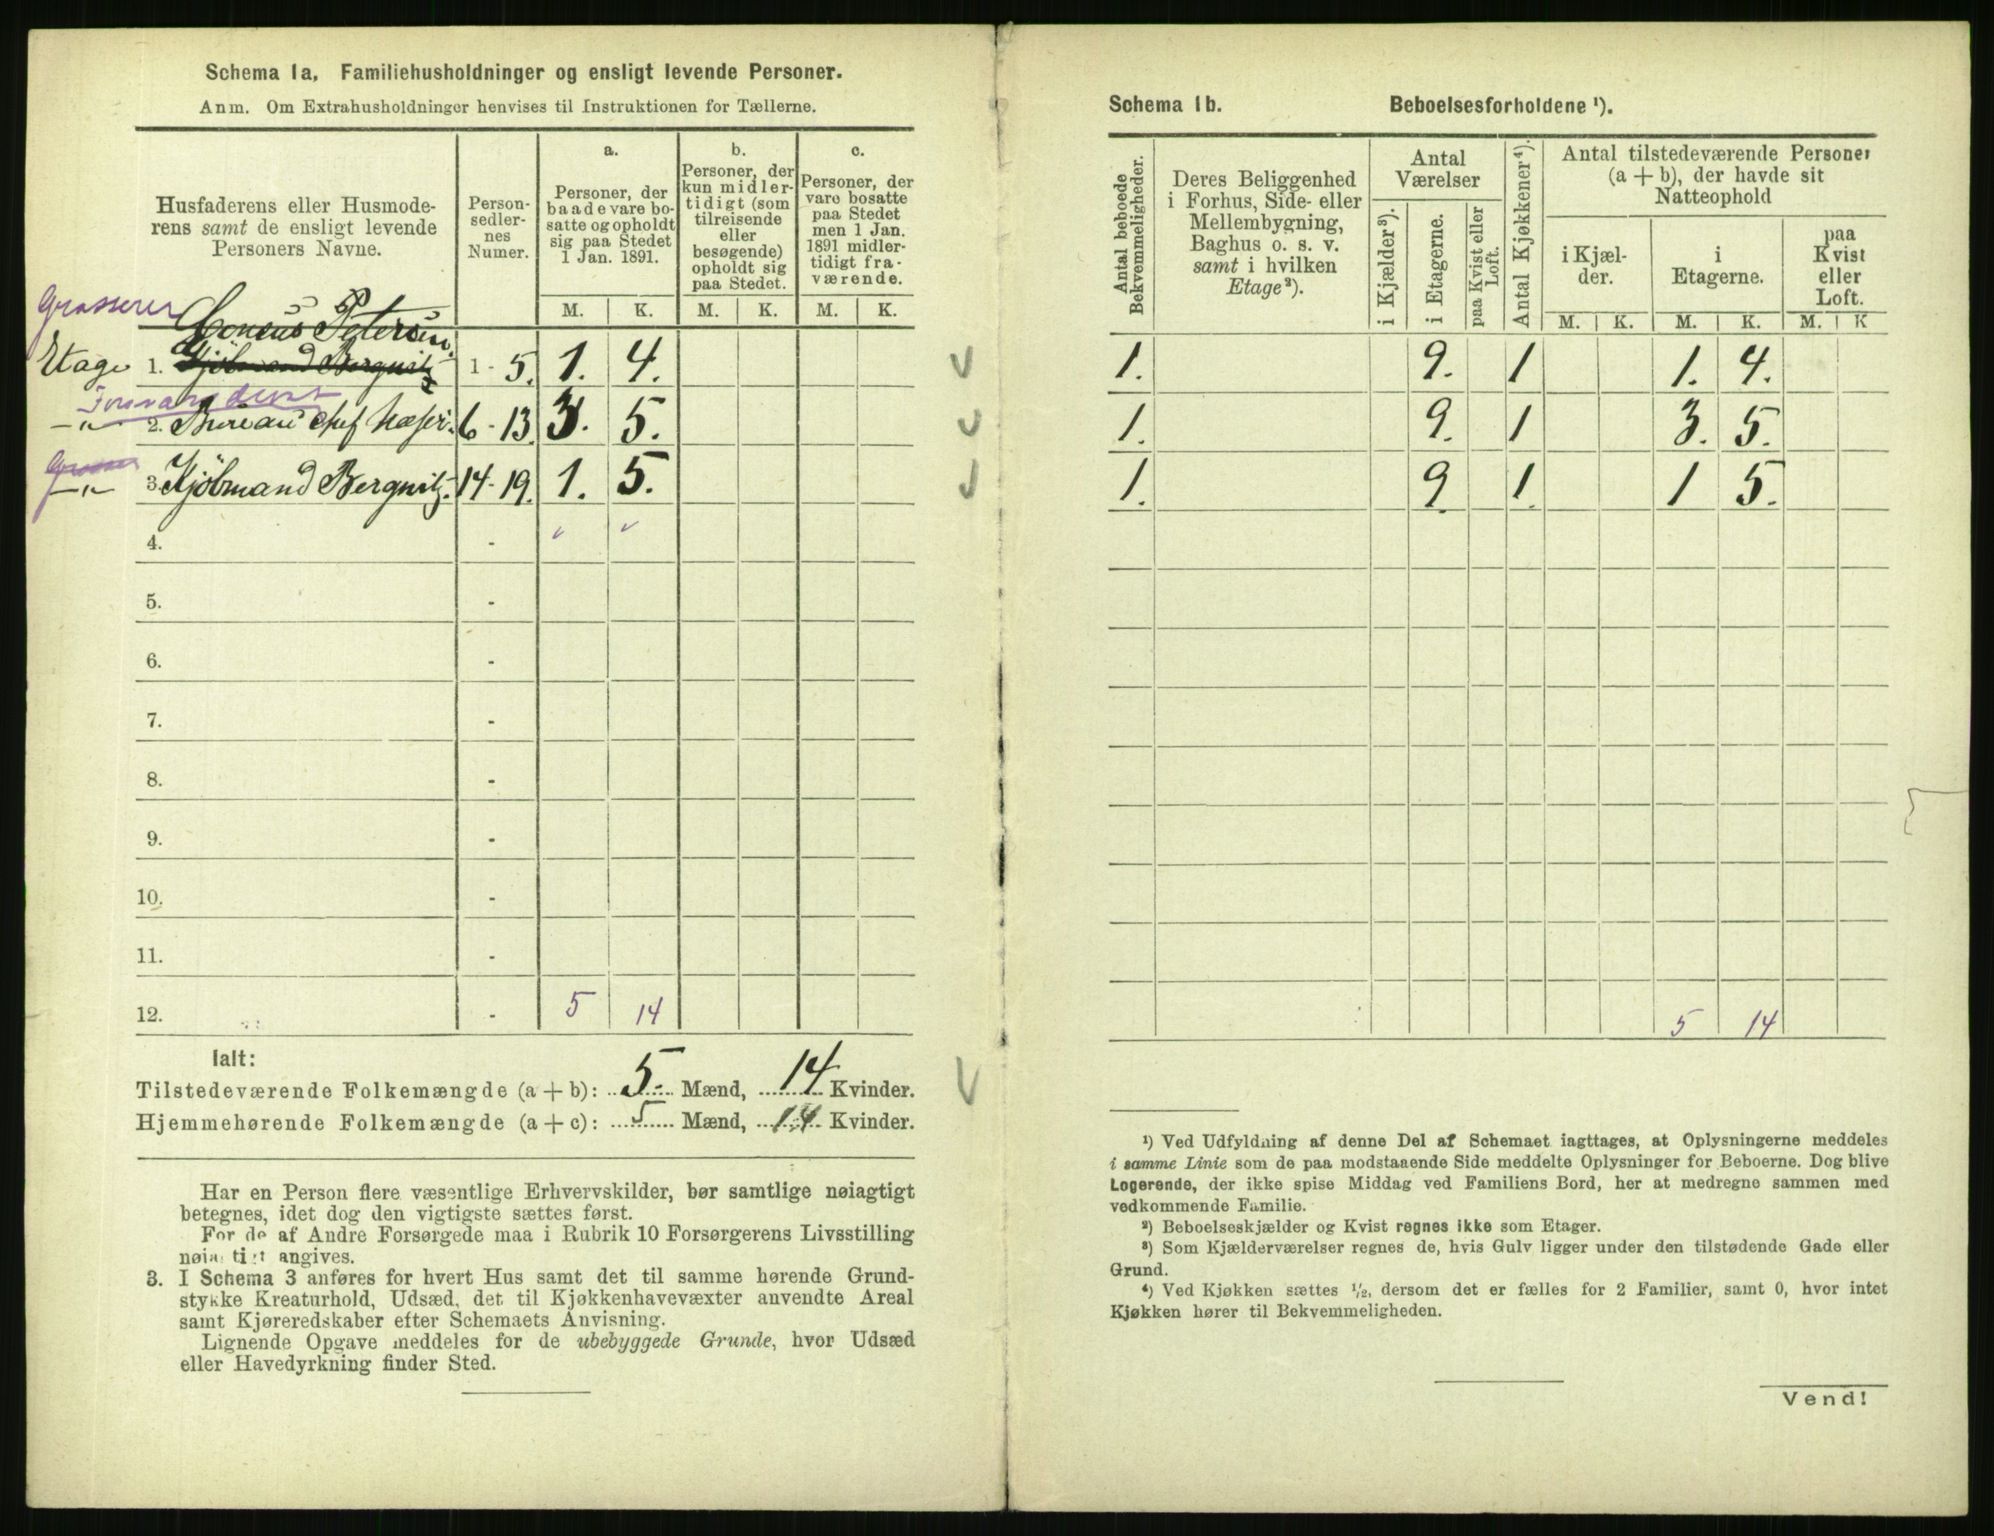 Schema 1a, Familiehusholdninger og ensligt levende Personer.
Anm. Om Extrahusholdninger henvises til Instruktionen for Tællerne.
Husfaderens eller Husmode-
rens samt de ensligt levende
Personers Navne.
Person-
sedler-
nes
Numer.
a.
Personer, der
baade vare bo-
satte og opholdt
sig paa Stedet
1 Jan. 1891.
b.
Personer, der
kun midler-
tidigt (som
tilreisende
eller
besøgende)
opholdt sig
paa Stedet.
c.
Personer, der
vare bosatte
paa Stedet
men 1 Jan.
1891 midler-
tidigt fra-
værende.
M. K. M. K. M. K.
Grosserer
Petersen
Etage 1. Kjøbmand Bergwitz 1 - 5. 1. 4.
-"- 2. Bureauchef Næser. 6 - 13. 3. 5.
-"- 3. Kjøbmand Bergwitz. 14 - 19. 1. 5.
4. -
5. -
6. -
7. -
8. -
9. -
10. -
11. -
12. - 5 14
Ialt:
Tilstedeværende Folkemængde (a + b): 5. Mænd, 14 Kvinder.
Hjemmehørende Folkemængde (a + c): 5 Mænd, 14 Kvinder.
Har en Person flere væsentlige Erhvervskilder, bør samtlige nøiagtigt
betegnes, idet dog den vigtigste sættes først.
For de af Andre Forsørgede maa i Rubrik 10 Forsørgerens Livsstilling
nøiagtigt angives.
3. I Schema 3 anføres for hvert Hus samt det til samme hørende Grund-
stykke Kreaturhold, Udsæd, det til Kjøkkenhavevæxter anvendte Areal
samt Kjøreredskaber efter Schemaets Anvisning.
Lignende Opgave meddeles for de ubebyggede Grunde, hvor Udsæd
eller Havedyrkning finder Sted.
Schema 1b. Beboelsesforholdene ¹).
Antal beboede
Bekvemmeligheder.
Deres Beliggenhed
i Forhus, Side- eller
Mellembygning,
Baghus o. s. v.
samt i hvilken
Etage²).
Antal
Værelser
i Kjælder³).
i Etagerne.
paa Kvist eller
Loft.
Antal Kjøkkener⁴).
Antal tilstedeværende Personer
(a + b), der havde sit
Natteophold
i Kjæl-
der.
i
Etagerne.
paa
Kvist
eller
Loft.
M. K. M. K. M. K
1. 9. 1 1. 4.
1. 9. 1 3. 5.
1. 9. 1. 1 5.
5 14
¹) Ved Udfyldning af denne Del af Schemaet iagttages, at Oplysningerne meddeles
i samme Linie som de paa modstaaende Side meddelte Oplysninger for Beboerne. Dog blive
Logerende, der ikke spise Middag ved Familiens Bord, her at medregne sammen med
vedkommende Familie.
²) Beboelseskjælder og Kvist regnes ikke som Etager.
³) Som Kjælderværelser regnes de, hvis Gulv ligger under den tilstødende Gade eller
Grund.
⁴) Ved Kjøkken sættes ½, dersom det er fælles for 2 Familier, samt 0, hvor intet
Kjøkken hører til Bekvemmeligheden.
Vend!